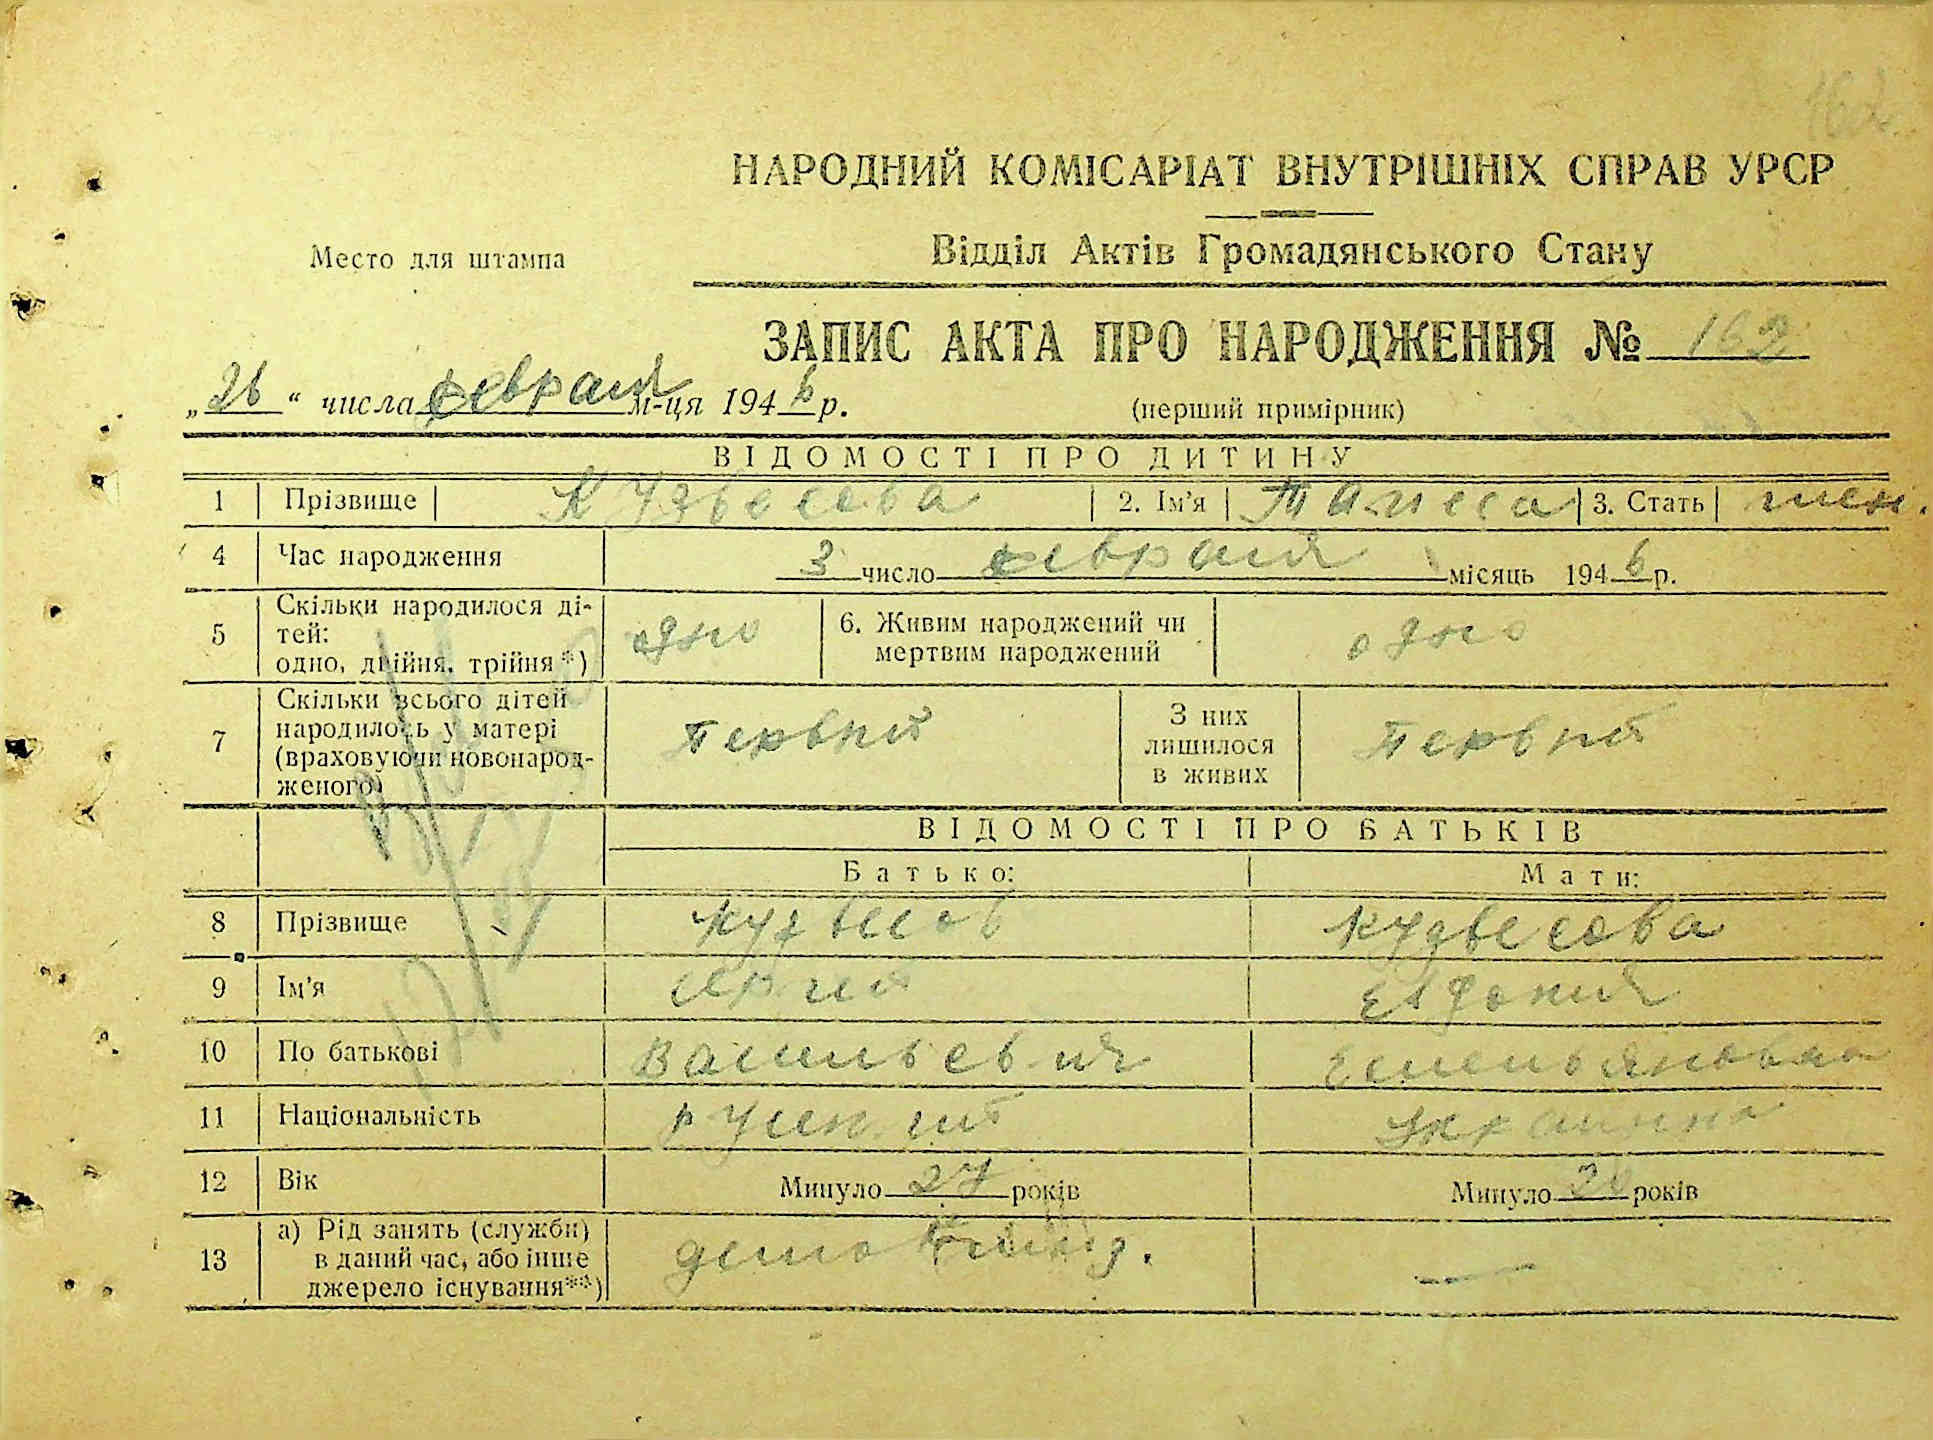 162
НАРОДНИЙ КОМІСАРІАТ ВНУТРІШНІХ СПРАВ УРСР
Место для штампа
Відділ Актів Громадянського Стану
ЗАПИС АКТА ПРО НАРОДЖЕННЯ № 162
„26“ числа февраля м-ця 1946 р.
(перший примірник)
ВІДОМОСТІ ПРО ДИТИНУ
1 Прізвище 2. Ім'я 3. Стать жен.
4 Час народження 3 число февраля місяць 1946 р.
5 Скільки народилося ді-
тей:
одно, двійня, трійня*) одно
6. Живим народжений чи
мертвим народжений одно
7 Скільки всього дітей
народилось у матері
(враховуючи новонарод-
женого) Первий
З них
лишилося
в живих Первий
ВІДОМОСТІ ПРО БАТЬКІВ
Батько: Мати:
8 Прізвище
9 Ім'я
10 По батькові Васильевич Емельяновна
11 Національність руский украинка
12 Вік Минуло 27 років Минуло 20 років
13 а) Рід занять (служби)
в даний час, або інше
джерело існування**) —